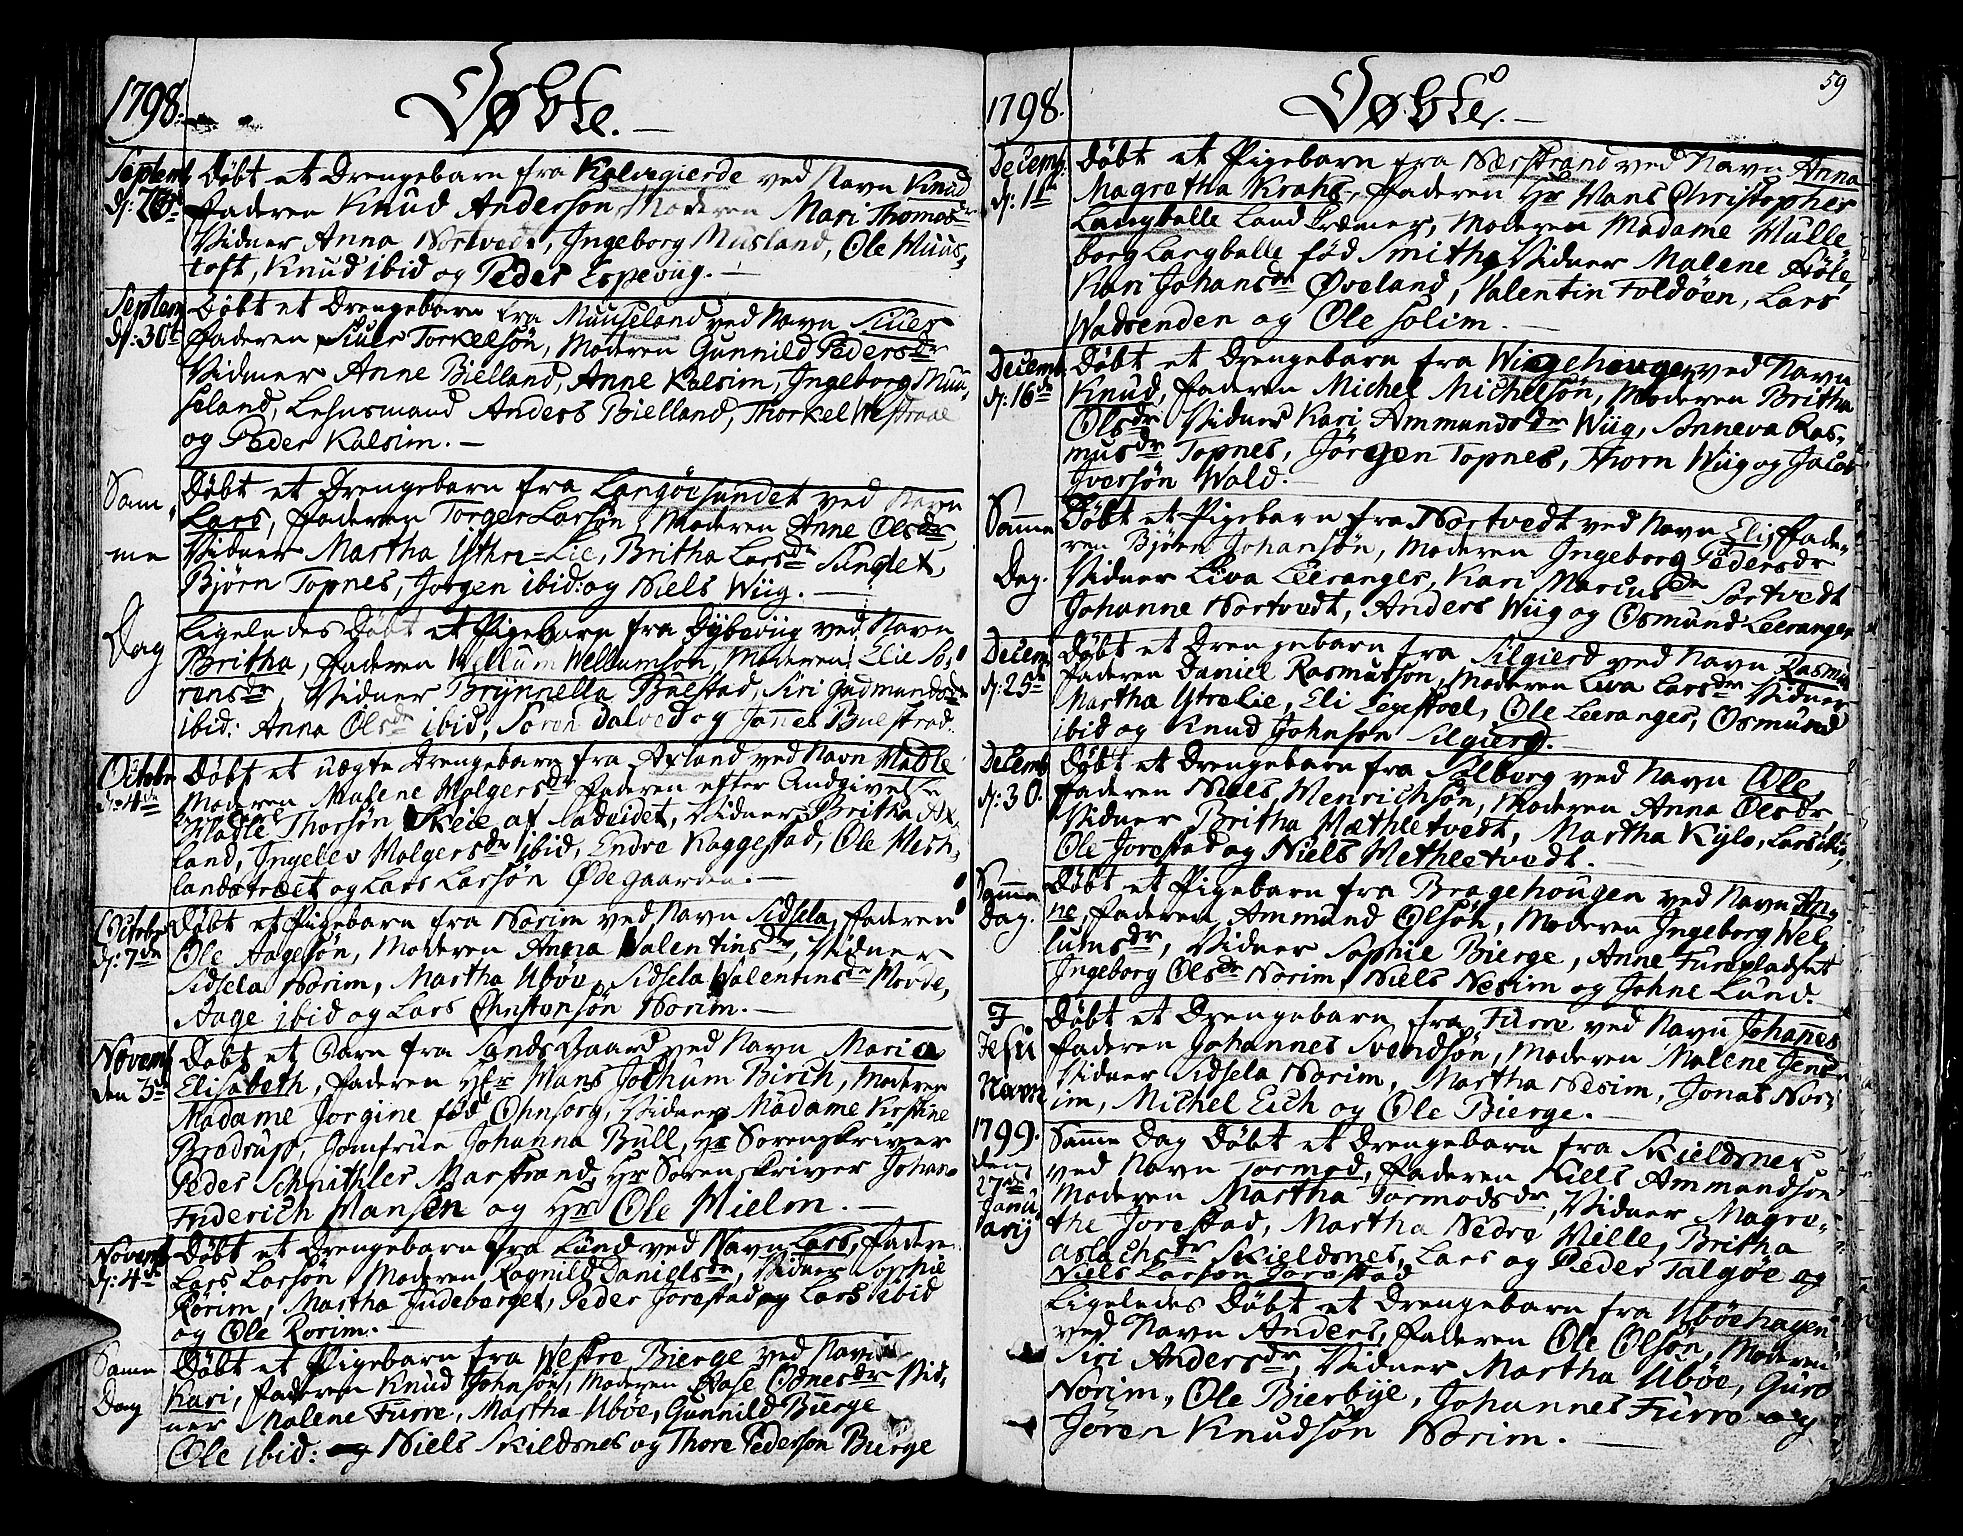 1798.
Døbte.
Septemb
Døbt et Drengebarn fra Kalvegierde ved Navn Knud
Faderen Knud Anderson, Moderen Mari Thomasdr
Vidner Anna Nortvedt, Ingeborg Musland, Ole Muus-
toft, Knud ibid og Peder Espeviig.
Septem
d: 30t
Døbt et Drengebarn fra Muuseland ved Navn Siuer
Faderen Siuer Torkelsøn, Moderen Gunnild Pedersdr
Vidner Anne Bielland, Anne Kalsim, Ingeborg Muu-
seland, Lehnsmand Anders Bielland, Thorkel Westraae
og Peder Kalsim.
Sam-
me
Dag
Døbt et Drengebarn fra Langøesundet ved Navn
Lars, Faderen Torger Larsøn, Moderen Anne Olsdr
Vidner Martha Ysthre-Lie, Britha Larsdr Sundet,
Bjørn Topnes, Jørgen ibid: og Niels Wiig.
Ligeledes Døbt et Pigebarn fra Dybeviig ved Navn
Britha, Faderen Wellum Wellumsøn, Moderen Elie Sø-
rensdr, Vidner Brynnella Buestad, Siri Gudmundsdr
ibid: Anna Olsdr ibid, Søren Dalved og Jonnes Buestad.
Octobr
d: 4de
Døbt et uægte Drengebarn fra Axland ved Navn Madle
Moderen Malene Holgersdr Faderen efter Andgivelse
Madle Thorsøn Skeie af ladeidet, Vidner Britha Ax-
land, Ingelev Holgersdr ibid, Endre Kaggestad, Ole Mesk-
landstræet og Lars Larsøn Ødegaarden.
Octobr
d: 7de
Døbt et Pigebarn fra Norim ved Navn Sidsela, Faderen
Ole Aagesøn, Moderen Anna Valentinsdr, Vidner
Sidsela Norim, Martha Ubøe, Sidsela Valentinsdr Hovde,
Aage ibid og Lars Christensøn Norim.
Novemb
den 3de
Døbt et Barn fra SandsGaard ved Navn Maria
Elisabeth, Faderen Hr Hans Jochum Birch, Moderen
Madame Jorgine fød Ohnsorg, Vidner Madame Kirstine
Brodrup, Jomfrue Johanna Bull, Hr Sorenskriver
Peder Schnithler Marstrand, Hr Sorenskriver Johan
Friderich Hansen og Hr Ole Hielm.
Novemb
d: 4de
Døbt et Drengebarn fra Lund ved Navn Lars, Fader
Lars Larsøn Moderen Ragnild Danielsdr, Vidner Sophie
Rørim, Martha Judeberget, Peder Jorestad og Lars ibid
og Ole Rorim.
Same
Dag
Døbt et Pigebarn fra Westre Bierge ved Navn
Kari, Faderen Knud Johnsøn, Moderen Aase Odnesdr Vid-
ner Malene Furre, Martha Ubøe, Gunnild Bierge
Ole ibid: og Niels Skildsnes og Thore Pederson Bierge
59
1798.
Døbte.
Decemb:
d: 1te
Døbt et Pigebarn fra Nerstrand ved Navn Anna
Magretha Krake, Faderen Hr Hans Christopher
Langballe Land Kræmer, Moderen Madame Mulle-
borg Langballe fød Smith, Vidner Malene Høle,
Kari Johansdr Øveland, Valentin Foldøen, Lars
Wadsenden og Ole Solim.
Decemb
d: 16de
Døbt et Drengebarn fra Wiigehougen ved Navn
Knud, Faderen Michel Michelsøn, Moderen Britha
Olsdr Vidner Kari Ammundsdr Wiig, Anneva Ras-
musdr Topnes, Jørgen Topnes, Thorn Wiig og Jacob
Iversøn Wald.
Samme
Dag.
Døbt et Pigebarn fra Nortvedt ved Navn Eli, Fade-
ren Bjørn Johansøn, Moderen Ingeborg Pedersdr
Vidner Liva Leeranger, Kari Mariusdr Sortvedt
Johanne Nortvedt, Anders Wiig og Osmund Leeranger
Decem
d: 25de
Døbt et Drengebarn fra Silgierd ved Navn Rasmus
Faderen Daniel Rasmussøn, Moderen Liva Larsdr Vidner
Martha Ytrelie, Eli Legestoel, Ole Leeranger, Osmund
ibid og Knud Johnsøn Silgierd.
Decemb
d: 30.
Døbt et Drengebarn fra Solborg ved Navn Ole,
Faderen Niels Henrichsøn, Moderen Anna Olsdr
Vidner Britha Hæthletvedt, Martha Kylo, Lars ibid,
Ole Jorestad og Niels Hethletvedt.
Samme
Dag.
Døbt et Pigebarn fra Bragehougen ved Navn An-
ne, Faderen Ammund Olsøn, Moderen Ingeborg Wel-
lumsdr, Vidner Sophie Bierge, Anne Furepladset
Ingeborg Olsdr Norim, Niels Nesim og Johne Lund.
F
Jesu
Navn
1799.
den
27de
Janu-
arij
Døbt et Drengebarn fra Furre ved Navn Johanes
Faderen Johannes Svendsøn, Moderen Malene Jensdr
Vidner Sidsela Norim, Martha Nesim, Jonas Nor-
im, Michel Eich og Ole Bierge.
Samme Dag Døbt et Drengebarn fra Skieldsnes
ved Navn Tormod, Faderen Niels Ammundsøn
Moderen Martha Tormodsdr, Vidner Magre-
the Jorestad, Martha Nedre Helle, Britha
Aslachsdr Skieldsnes, Lars og Peder Talgøe og
Niels Larson Jorestad
Ligeledes Døbt et Drengebarn fra Ubøehagen
ved Navn Anders, Faderen Ole Olsøn, Moderen
Siri Andersdr, Vidner Martha Ubøe, Guro
Norim, Ole Bierbye, Johannes Furre og
Jøren Knudsøn Norim.